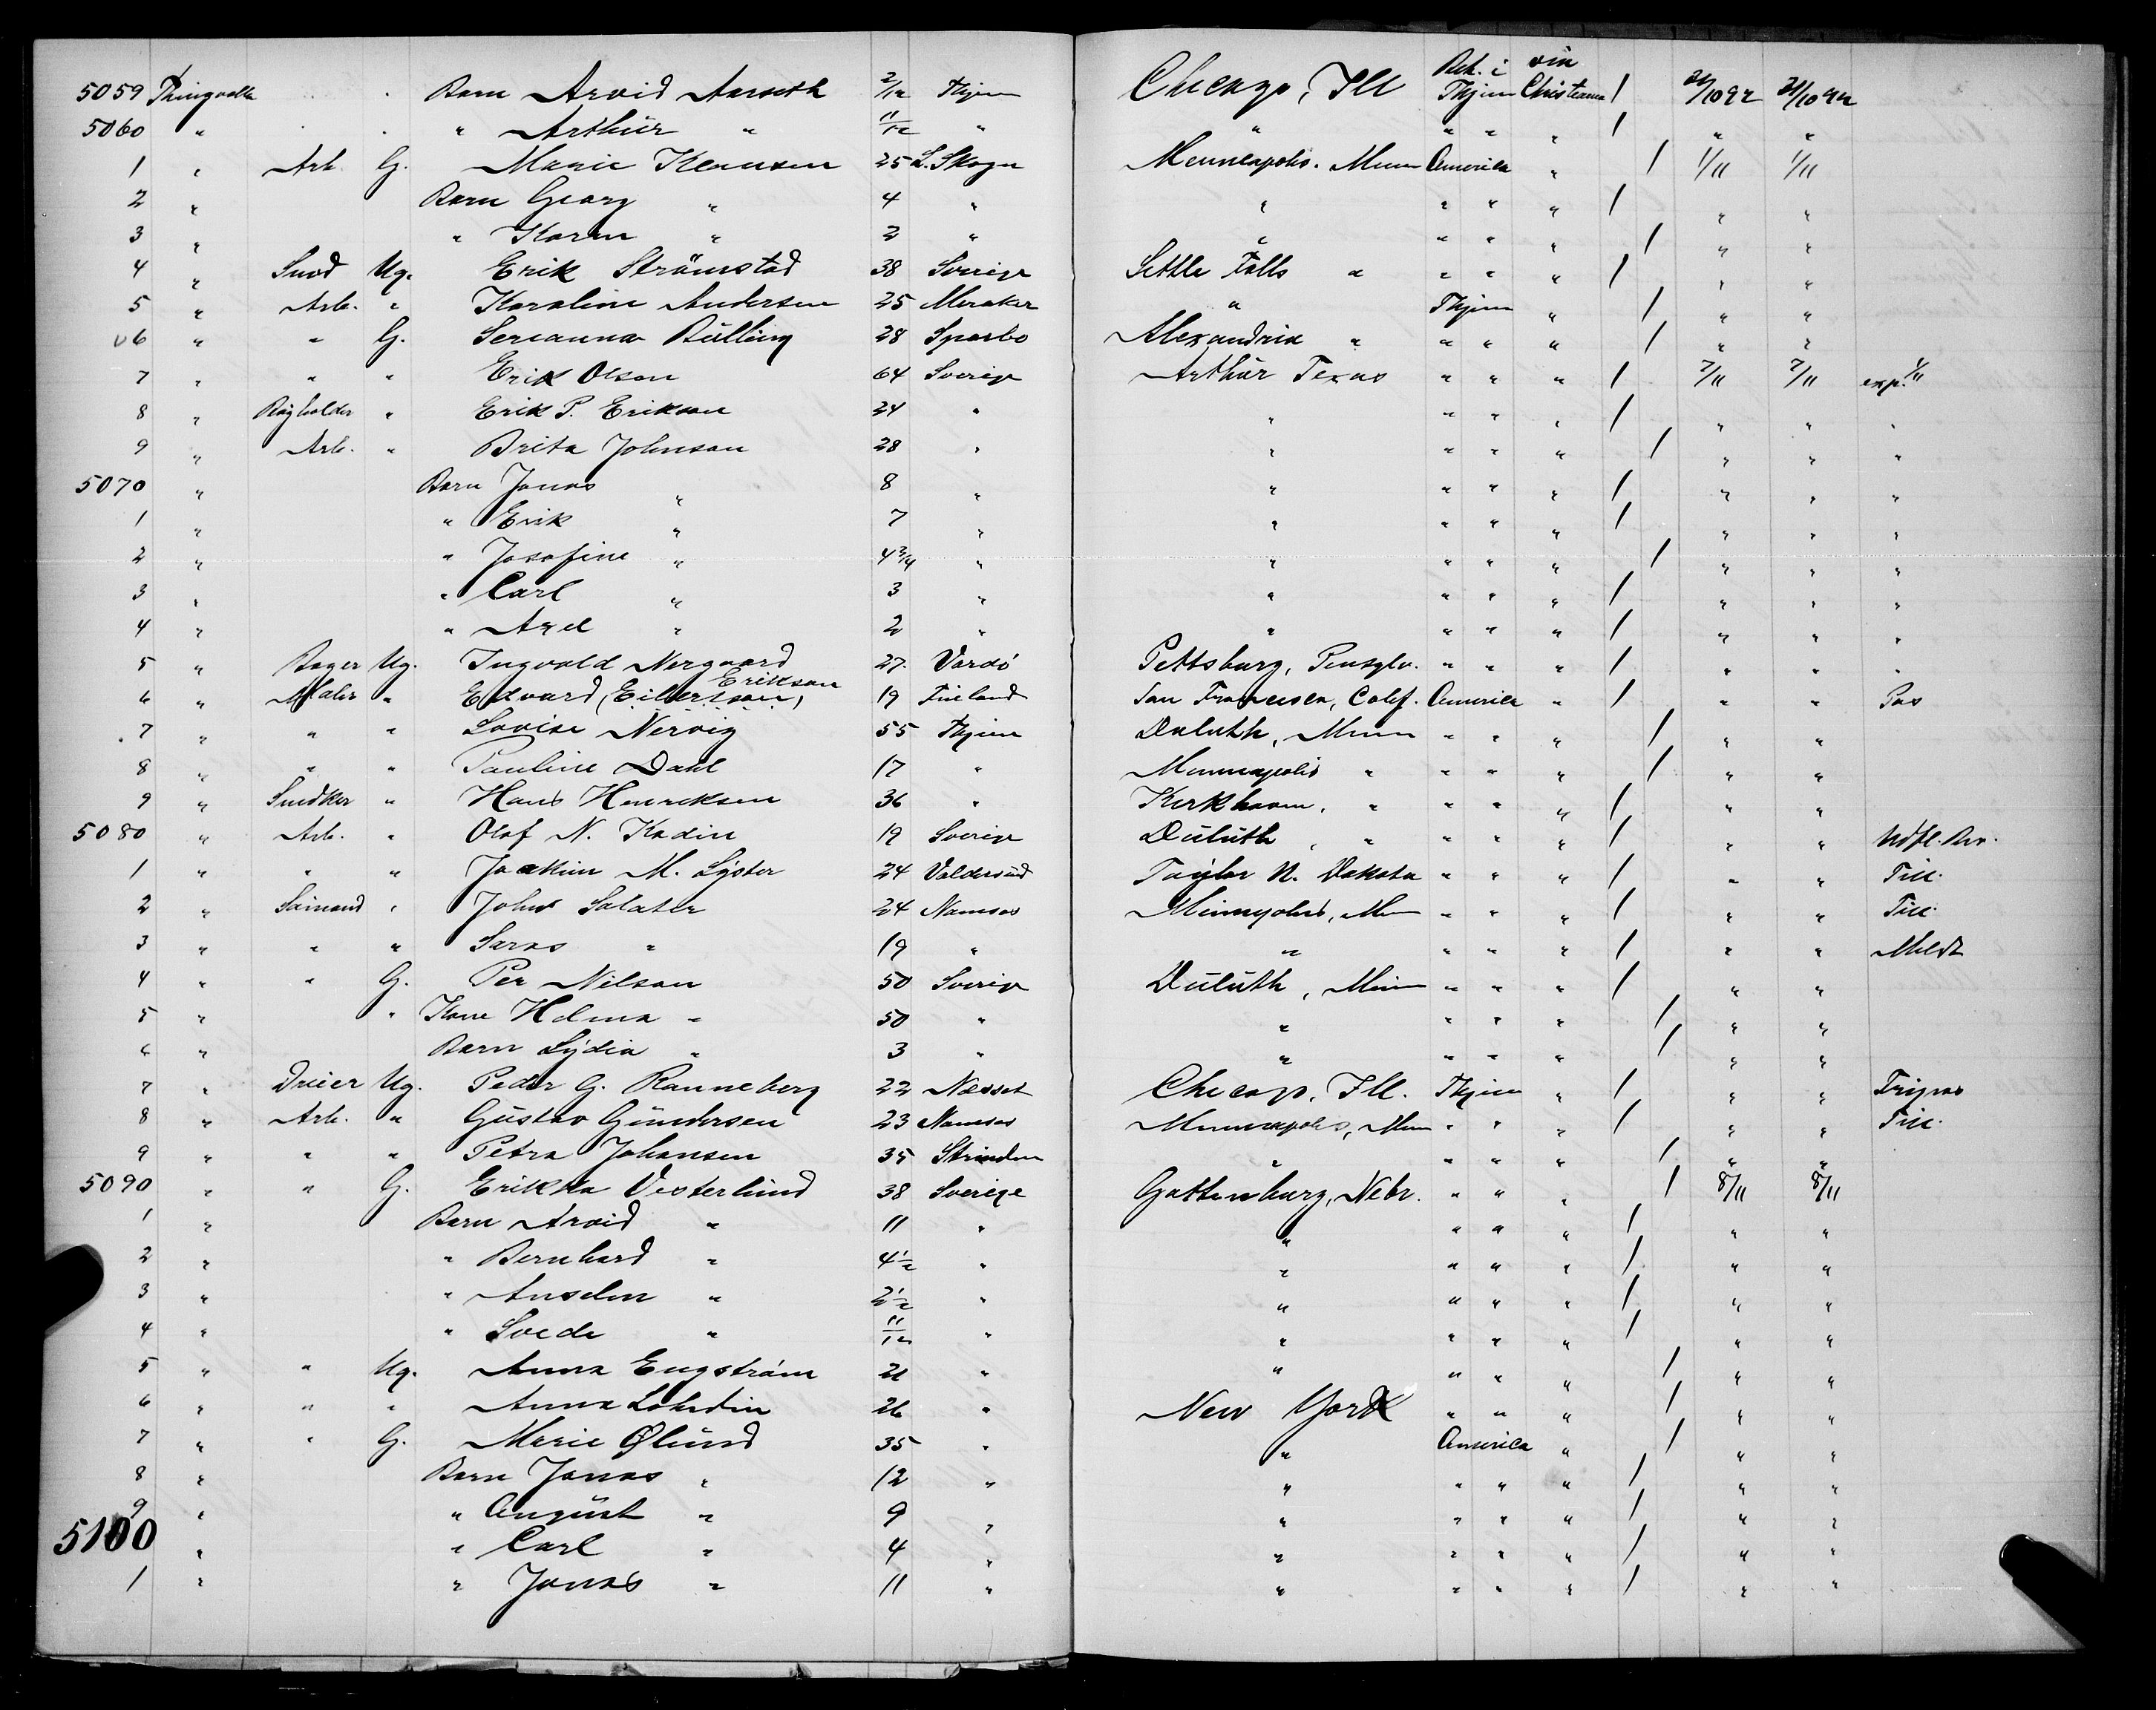 5059 Thingvalla Barn Arvid Aarseth 2/12 Thjem Chicago, Ill Bet. i Thjem via Christiania / 31/10 92 31/10 92
5060 " " Arthur " 11/12 " " " " " / " "
1 " Arb. G. Marie Klausen 25 L. Skogn Minneapolis. Minn America " / 1/11 1/11
2 " Barn Georg " 4 " " " " " / " "
3 " " Karen " 2 " " " " " / " "
4 " Sned Ug. Erik Strömstad 38 Sverige Little Falls " " " " / " "
5 " Arb. " Karoline Andersen 25 Meraker " Thjem " / " "
6 " " G. Serianna Bülling 28 Sparbo Alexandria " " " " / " "
7 " " " Erik Olson 64 Sverige Arthur Texas " " " / 7/11 7/11 exp. 1/11
8 " " Erik P. Erikson 24 " " " " " / " " "
9 " Arb. " Brita Johnson 28 " " " " " / " " "
5070 " Barn Jonas " 8 " " " " " / " " "
1 " " Erik " 7 " " " " " / " " "
2 " " Josefine " 4 3/4 " " " " " / " " "
3 " " Carl " 3 " " " " " / " " "
4 " " Axel " 2 " " " " " / " " "
5 " Bager Ug. Ingvald Nergaard 27. Vardö Pittsburg, Pensylv. " " " / " " "
6 " Maler " Edvard (Eilertson) Erikson 19 Finland San Francisco, Calif. America " / " " Pas
7 " " " Lovise Nervig 55 Thjem Duluth, Minn " " " / " "
8 " " " Pauline Dahl 17 " Minneapolis " " " " / " "
9 " Snedker " Hans Henriksen 36 " Kerkhoven, " " " " / " "
5080 " Arb. " Olof N. Kadin 19 Sverige Duluth, " " " " / " " Udfl. Bev.
1 " " " Joakim M. Lyster 24 Valdersund Taylor N. Dakota " " " / " " Till.
2 " Sömand " John Salater 24 Namsos Minneapolis, Minn " " " / " " Till.
3 " " " Saras " 19 " " " " " / " " Meldt
4 " " G. Per Nilson 50 Sverige Duluth, Minn " " " / " "
5 " " Kone Helma " 50 " " " " " / " "
6 " Barn Lydia " 3 " " " " " / " "
7 " Dreier Ug. Peder G. Ranneberg 22 Nesset Chicago, Ill. Thjem " / " " Fripas
8 " Arb. " Gustav Gundersen 23 Namsos Minneapolis, Minn " " " / " " Till.
9 " " " Petra Johansen 35 Strinden " " " " / " "
5090 " " G. Erikka Vesterlund 38 Sverige Gothenburg, Nebr. " " " / 8/11 8/11
1 " Barn Arvid " 11 " " " " " / " "
2 " " Bernhard " 4 1/2 " " " " " / " "
3 " " Anselm " 2 1/2 " " " " " / " "
4 " " Svede " 11/12 " " " " " / " "
5 " " Ug. Anna Engström 21 " " " " " / " "
6 " " " Anna Lohrdin 26 " New York " " " / " "
7 " " G. Marie Ølund 35 " " America " / " "
8 " Barn Jonas " 12 " " " " " / " "
9 " " August " 9 " " " " " / " "
5100 " " Carl " 4 " " " " " / " "
1 " " Jonas " 11 " " " " " / " "